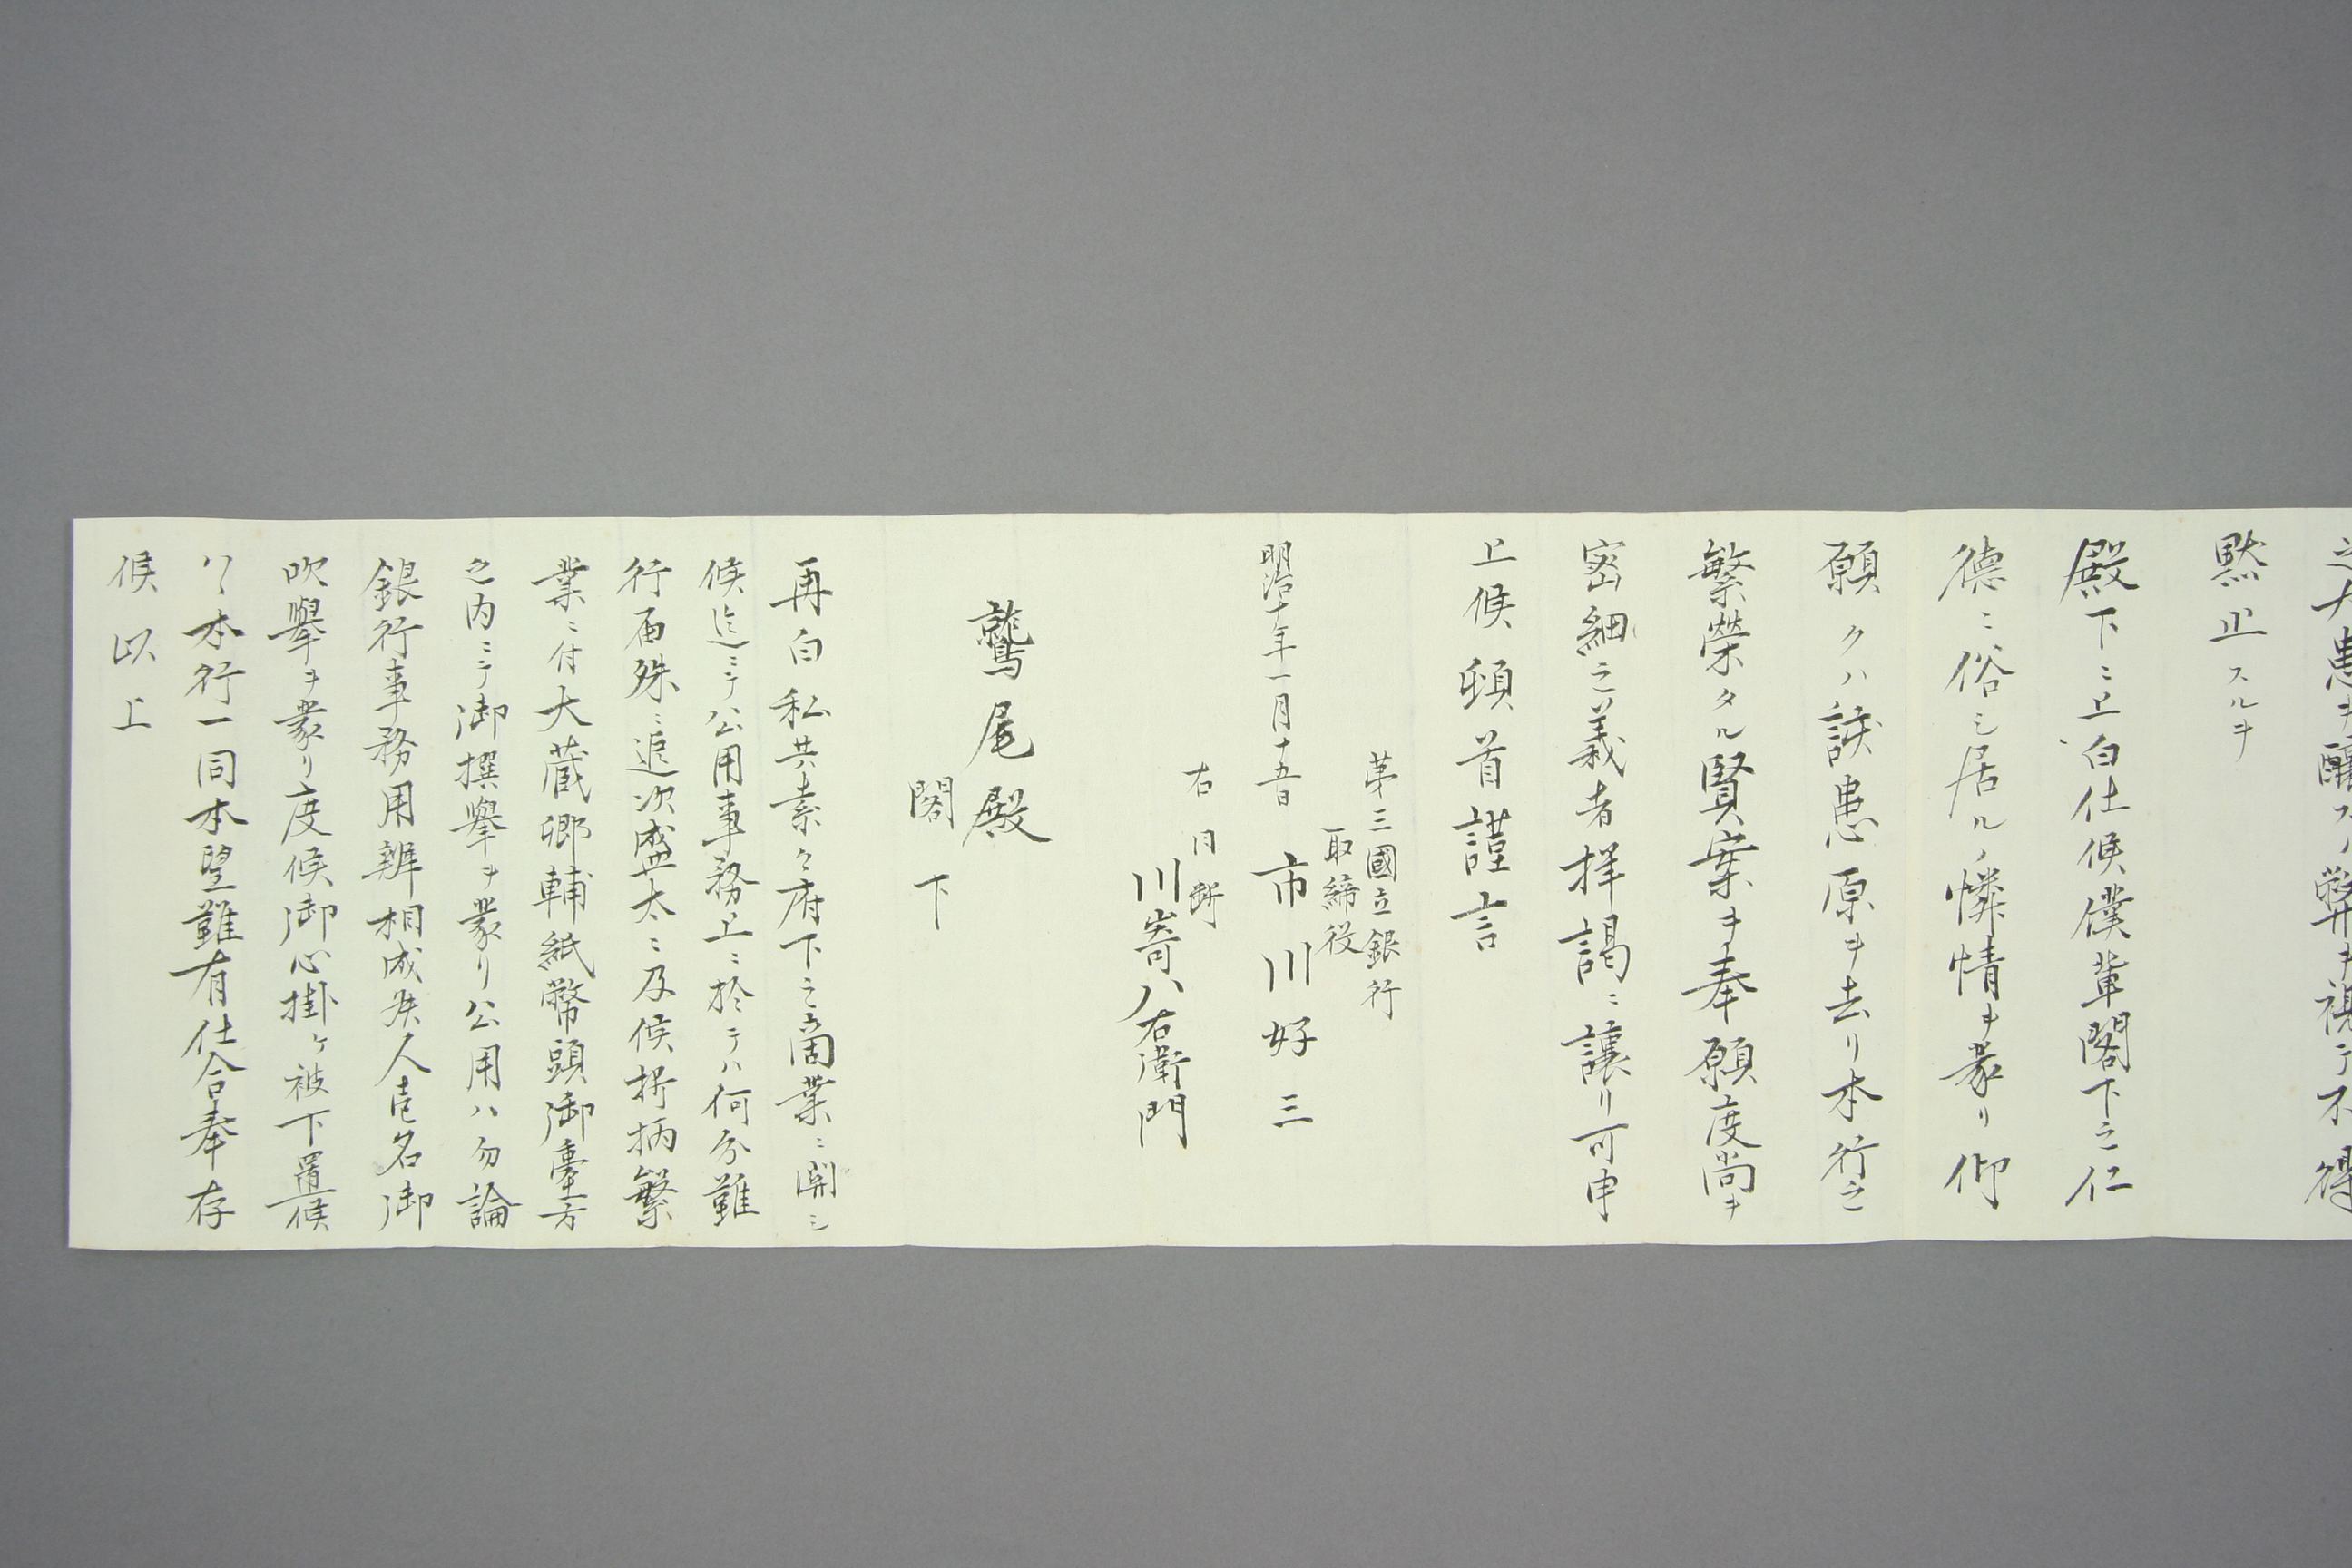 之大患ヲ釀スノ弊ヲ視テ不得
黙止スルヲ
殿下ニ上白仕候僕輩閣下之仁
徳ニ俗シ居ルノ憐情ヲ蒙リ仰
願クハ該患原ヲ去リ本行之
繁榮タル賢案ヲ奉願度尚ヲ
密細之義者拝謁ニ譲リ可申
上候頓首謹言
第三國立銀行
取締役
明治十年一月十五日 市川好三
右同断
川嵜八右衛門
鷲尾殿
閣下
再白私共素々府下之商業ニ関シ
候迄ニテ公用事務上ニ於テハ何分難
行届殊ニ追次盛太ニ及候折柄繁
業ニ付大蔵卿輔紙幣頭御臺方
之内ニテ御撰擧ヲ蒙リ公用ハ勿論
銀行事務用辨相成候人壱名御
吹擧ヲ蒙リ度候御心掛ケ被下置候
ハヽ本行一同本望難有仕合奉存
候以上